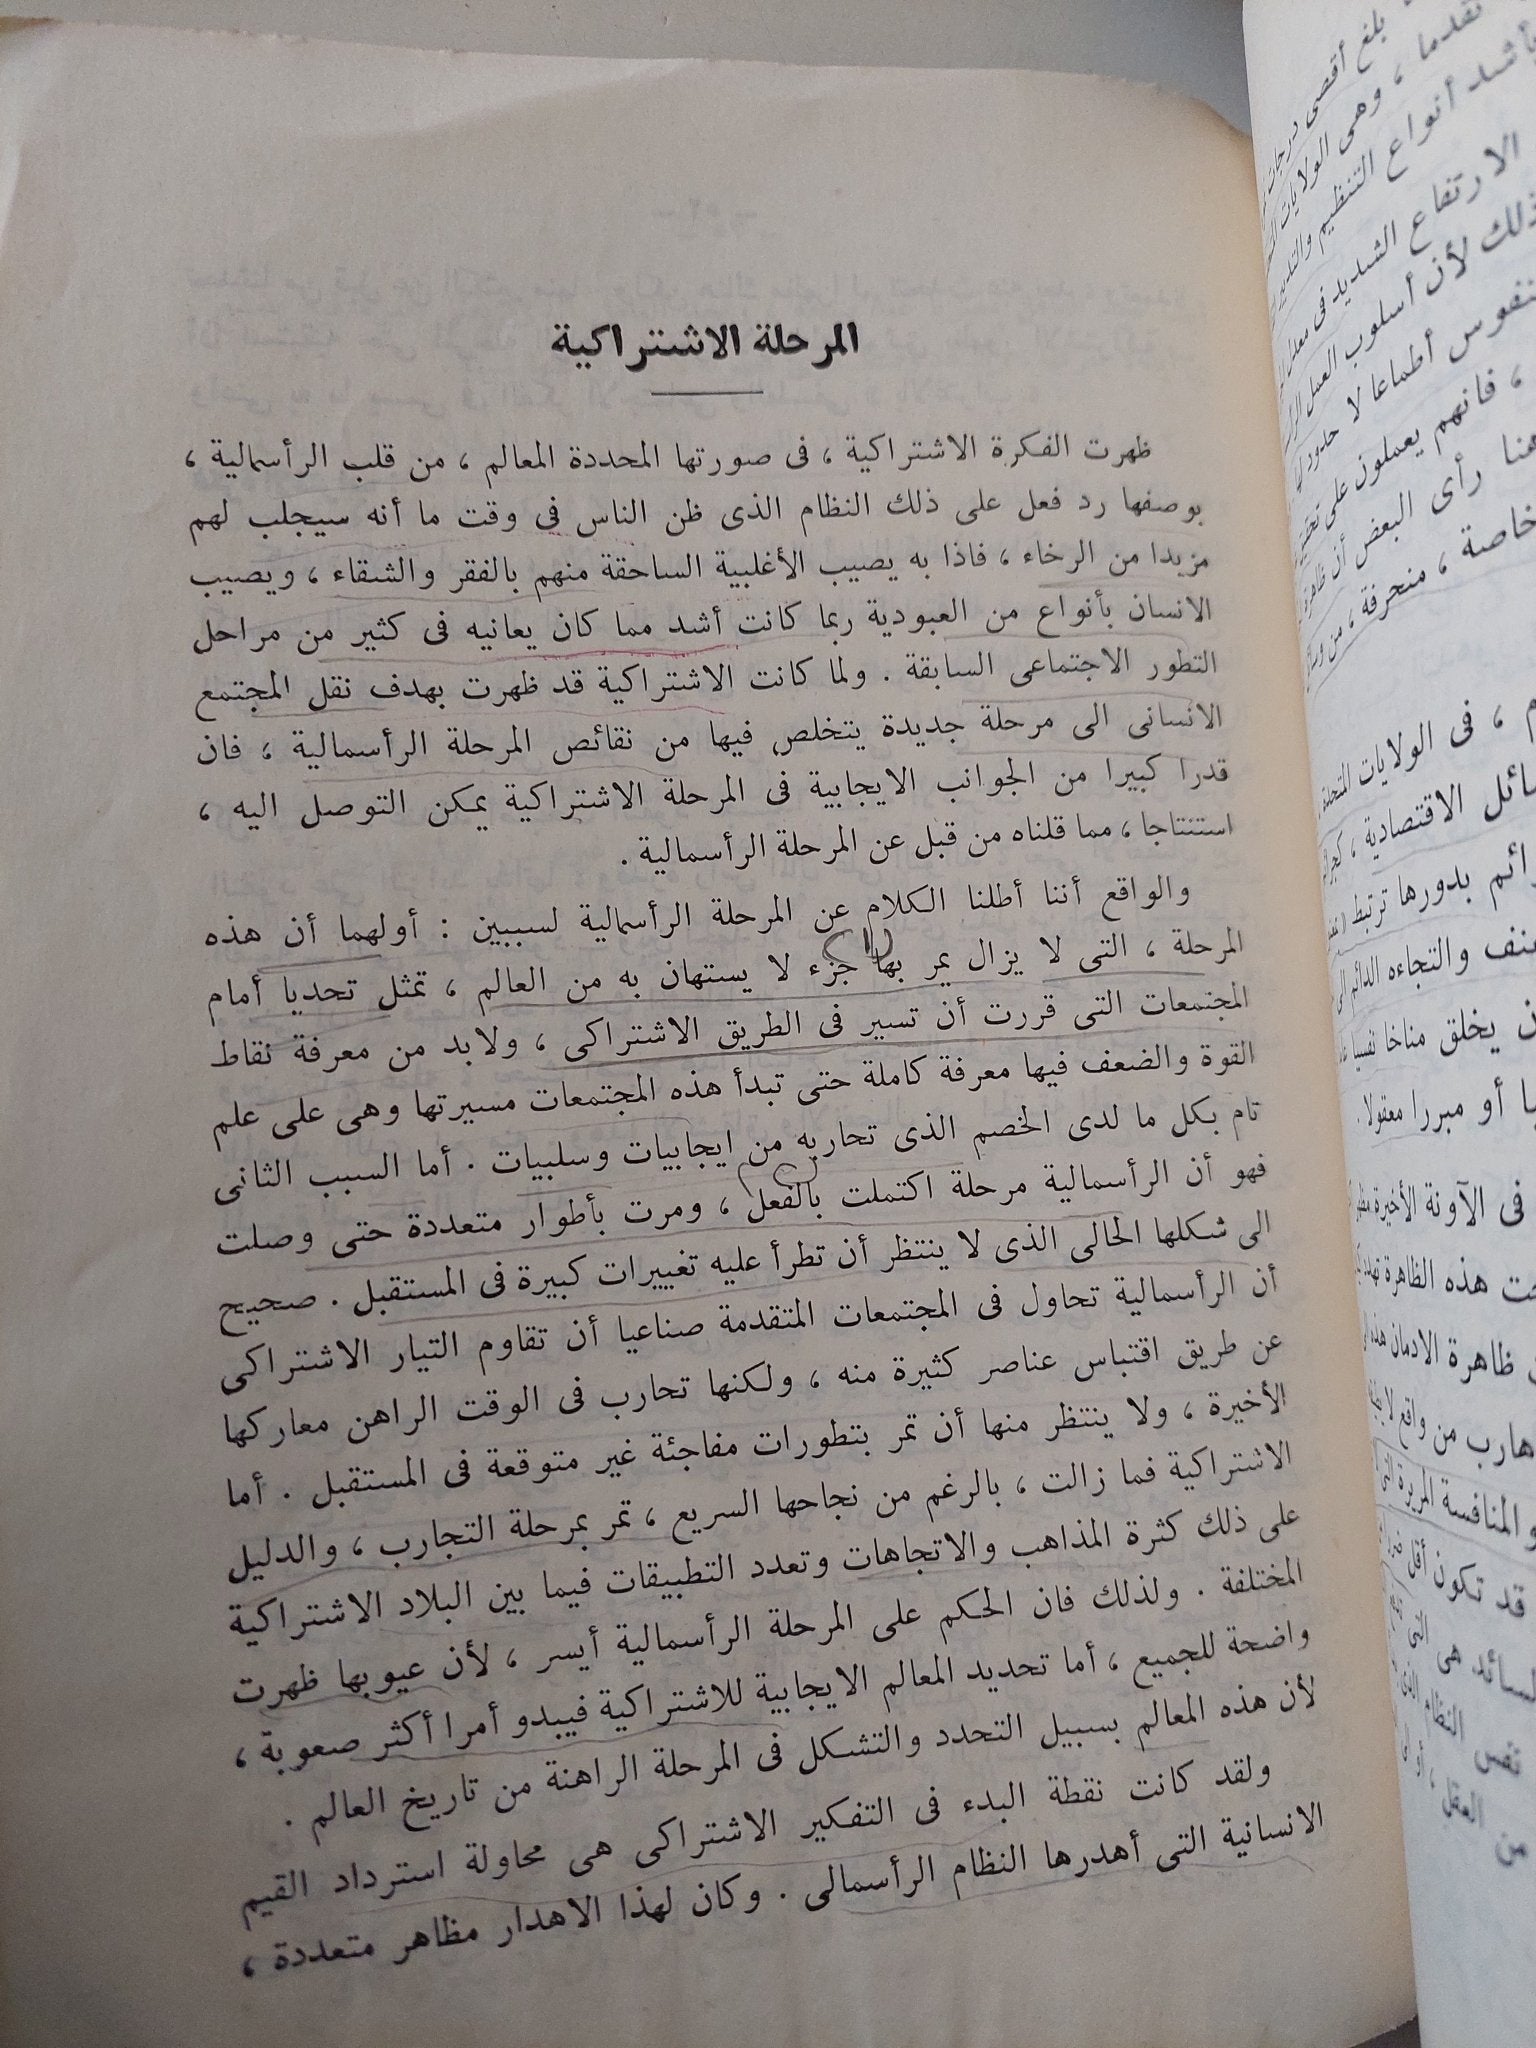 المرحلة الاشتراكية
ظهرت الفكرة الاشتراكية ، فى صورتها المحددة المعالم ، من قلب الرأسمالية ،
بوصفها رد فعل على ذلك النظام الذى ظن الناس فى وقت ما أنه سيجلب لهم
مزيدا من الرخاء ، فاذا به يصيب الأغلبية الساحقة منهم بالفقر والشقاء ، ويصيب
الانسان بأنواع من العبودية ربما كانت أشد مما كان يعانيه فى كثير من مراحل
التطور الاجتماعى السابقة . ولما كانت الاشتراكية قد ظهرت بهدف نقل المجتمع
الانسانى الى مرحلة جديدة يتخلص فيها من نقائص المرحلة الرأسمالية ، فان
قدرا كبيرا من الجوانب الايجابية فى المرحلة الاشتراكية يمكن التوصل اليه ،
استنتاجا ، مما قلناه من قبل عن المرحلة الرأسمالية .
والواقع أننا أطلنا الكلام عن المرحلة الرأسمالية لسببين : أولهما أن هذه
المرحلة ، التى لا يزال يمر بها جزء لا يستهان به من العالم ، تمثل تحديا أمام
المجتمعات التى قررت أن تسير فى الطريق الاشتراكى ، ولابد من معرفة نقاط
القوة والضعف فيها معرفة كاملة حتى تبدأ هذه المجتمعات مسيرتها وهى على علم
تام بكل ما لدى الخصم الذى تحاربه من ايجابيات وسلبيات . أما السبب الثانى
فهو أن الرأسمالية مرحلة اكتملت بالفعل ، ومرت بأطوار متعددة حتى وصلت
الى شكلها الحالى الذى لا ينتظر أن تطرأ عليه تغييرات كبيرة فى المستقبل . صحيح
أن الرأسمالية تحاول فى المجتمعات المتقدمة صناعيا أن تقاوم التيار الاشتراكى
عن طريق اقتباس عناصر كثيرة منه ، ولكنها تحارب فى الوقت الراهن معاركها
الأخيرة ، ولا ينتظر منها أن تمر بتطورات مفاجئة غير متوقعة فى المستقبل . أما
الاشتراكية فما زالت ، بالرغم من نجاحها السريع ، تمر بمرحلة التجارب ، والدليل
على ذلك كثرة المذاهب والاتجاهات وتعدد التطبيقات فيما بين البلاد الاشتراكية
المختلفة . ولذلك فان الحكم على المرحلة الرأسمالية أيسر ، لأن عيوبها ظهرت
واضحة للجميع ، أما تحديد المعالم الايجابية للاشتراكية فيبدو أمرا أكثر صعوبة ،
لأن هذه المعالم بسبيل التحدد والتشكل فى المرحلة الراهنة من تاريخ العالم .
ولقد كانت نقطة البدء فى التفكير الاشتراكى هى محاولة استرداد القيم
الانسانية التى أهدرها النظام الرأسمالى . وكان لهذا الاهدار مظاهر متعددة ،
بلغ أقصى درجات
تقدما ، وهى الولايات
أشد أنواع التنظيم
الارتفاع الشديد فى
ذلك لأن أسلوب العمل
أطماعا لا حدود
، فانهم يعملون على
هنا رأى البعض أن
خاصة ، منحرفة ، من
، فى الولايات المتحدة
الاقتصادية ،
بدورها ترتبط
والتجاءه الدائم
يخلق مناخا نفسيا
أو مبررا معقولا .
فى الآونة الأخيرة
هذه الظاهرة
ظاهرة الادمان
من واقع
والمنافسة المريرة
قد تكون أقل
هى التى
النظام